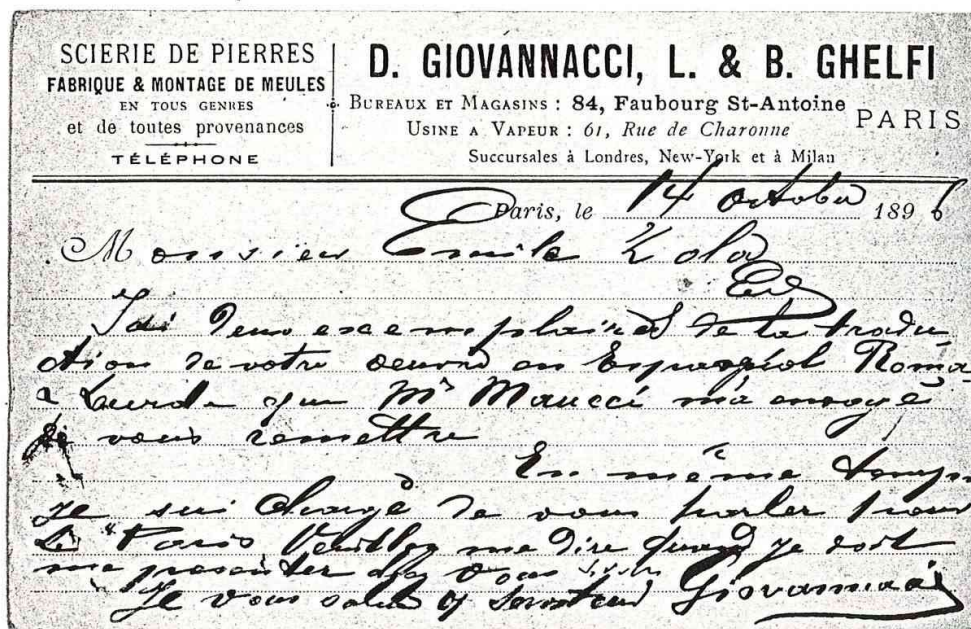 SCIERIE DE PIERRES
FABRIQUE & MONTAGE DE MEULES
EN TOUS GENRES
et de toutes provenances
TÉLÉPHONE
D. GIOVANNACCI, L. & B. GHELFI
BUREAUX ET MAGASINS : 84, Faubourg St-Antoine
PARIS
USINE A VAPEUR : 61, Rue de Charonne
Succursales à Londres, New-York et à Milan
Paris, le 14 octobre 1896
Monsieur Emile Zola
J'ai deux exemplaires de la tradu
ction de votre oeuvre en Espagnol Roma
e Lurde que Mr Maucci m'a envoyé
de vous remettre
En même temps
je sui chargé de vous parler pour
le "Paris Veuillez me dire quand je doit
me presenter chez vous
Je vous salue Serviteur Giovannacci